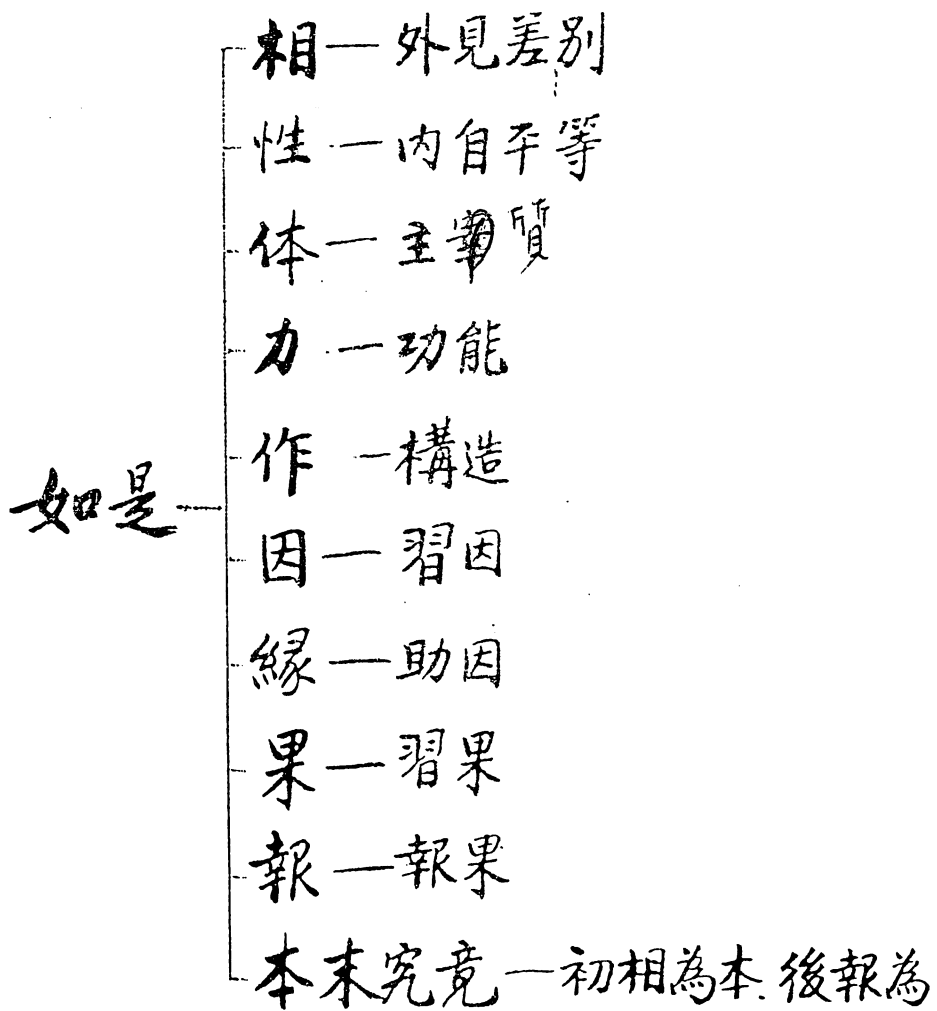 相—外見差別
性—内自平等
体—主質
力—功能
作—構造
如是
因—習因
緣—助因
果—習果
報—報果
本末究竟—初相為本.後報為